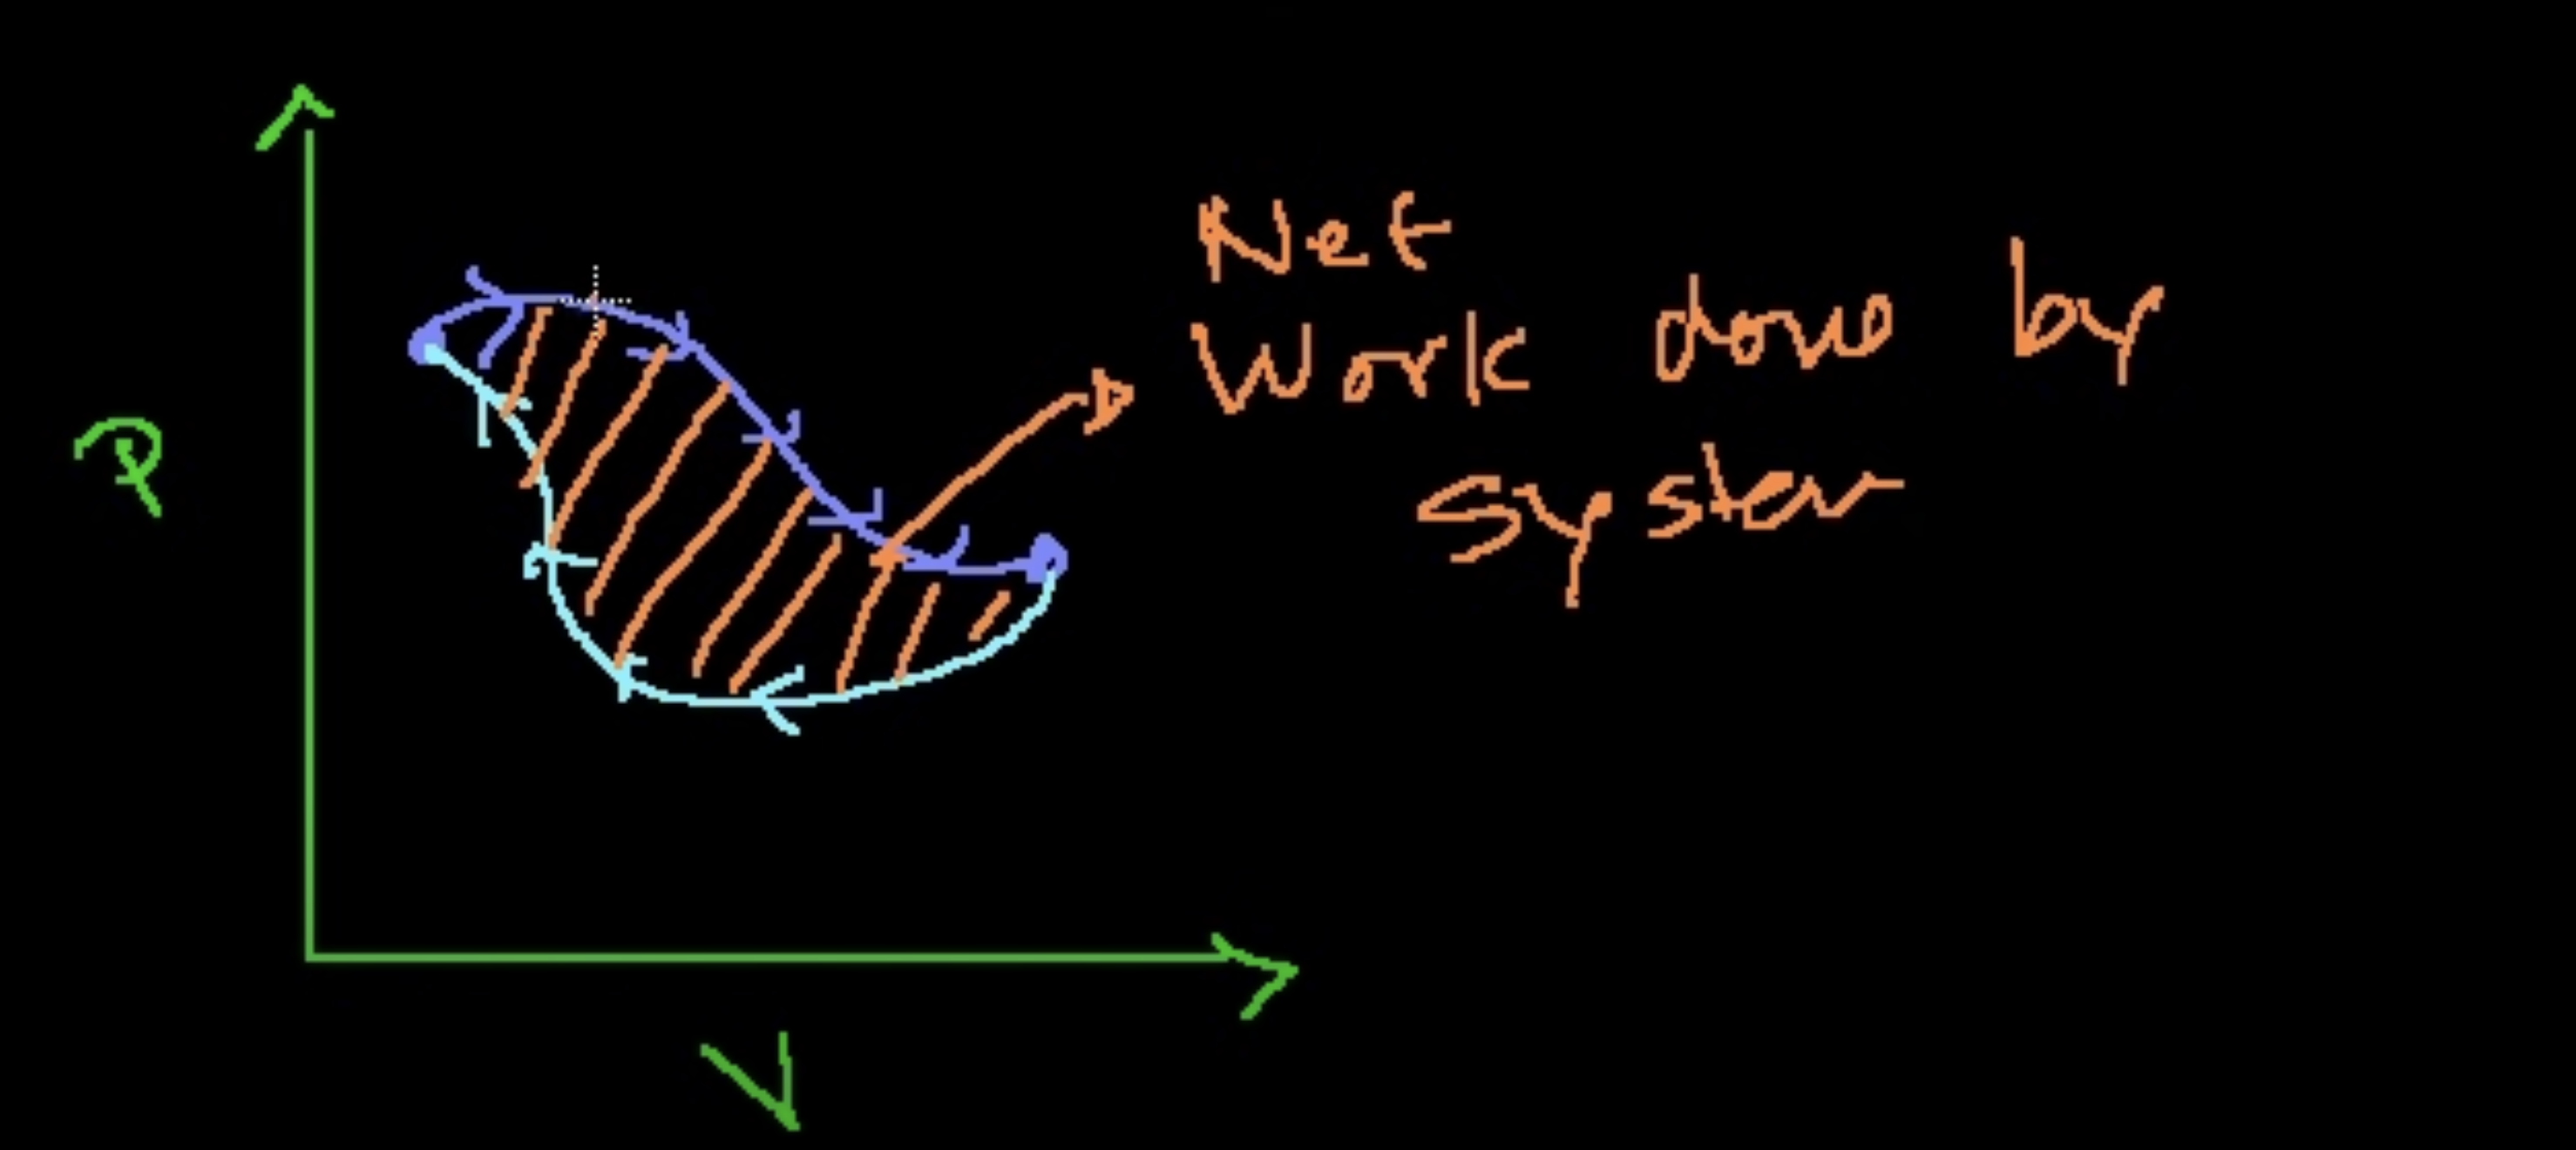 Net
Work done by
system
P
V